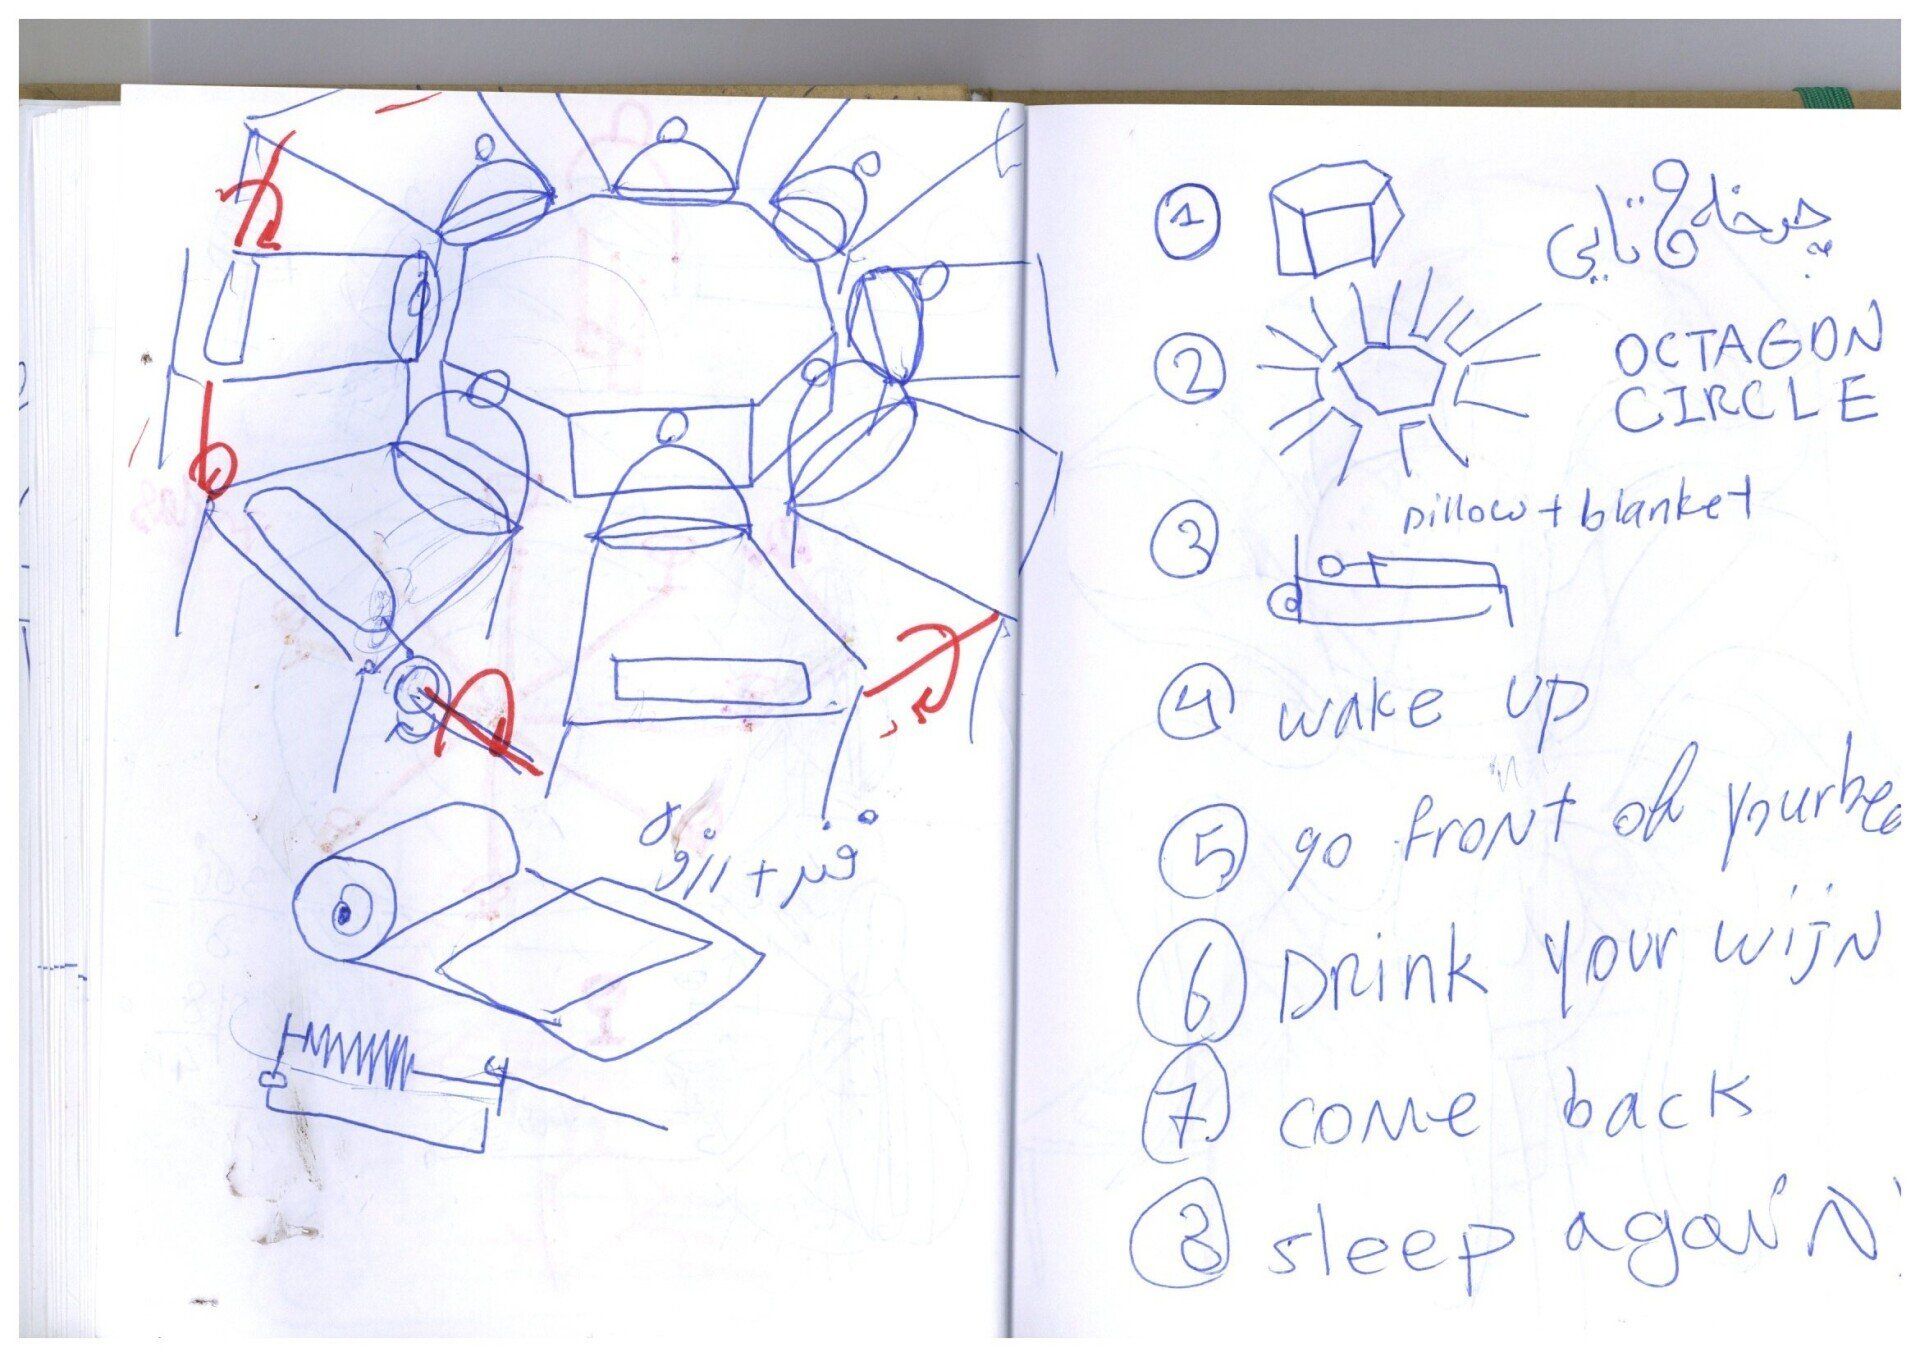 فنر +
1 چرخه تایی
2 OCTAGON
CIRCLE
3 pillow + blanket
4 wake up
5 go front of your bed
6 Drink your wijn
7 come back
8 sleep again